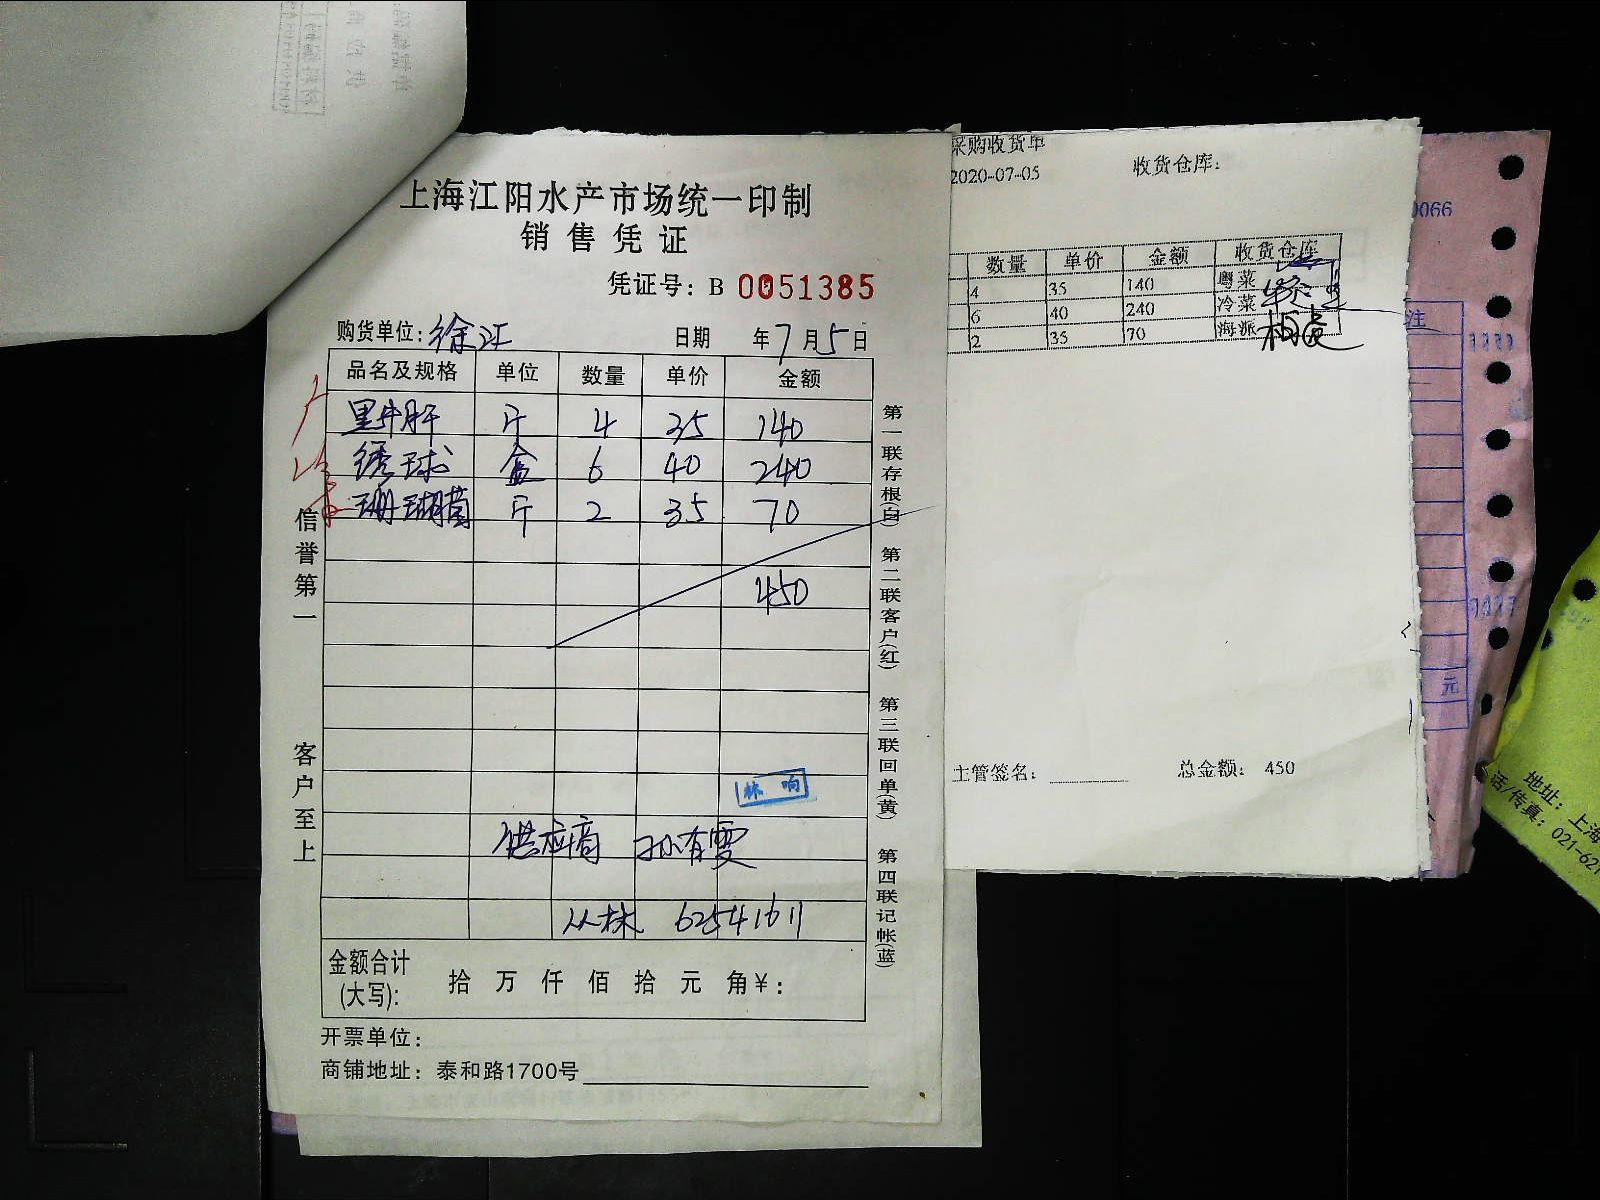 上海江阳水产市场统一印制
销售凭证
凭证号：B 0051385
购货单位：徐汇 日期 年7月5日
品名及规格 单位 数量 单价 金额
黑牛肝 斤 4 35 140
绣球 盒 6 40 240
珊瑚菌 斤 2 35 70
450
供应商 孙有雯
从林 62541611
金额合计
(大写)： 拾 万 仟 佰 拾 元 角 ¥：
开票单位：
商铺地址：泰和路1700号
信誉第一
客户至上
第一联存根(白) 第二联客户(红) 第三联回单(黄) 第四联记帐(蓝)
林 响
采购收货单
2020-07-05 收货仓库：
数量 单价 金额 收货仓库
4 35 140 粤菜
6 40 240 冷菜
2 35 70 海派
主管签名： 总金额： 450
0066
注
元
地址：上海
话/传真：021-621